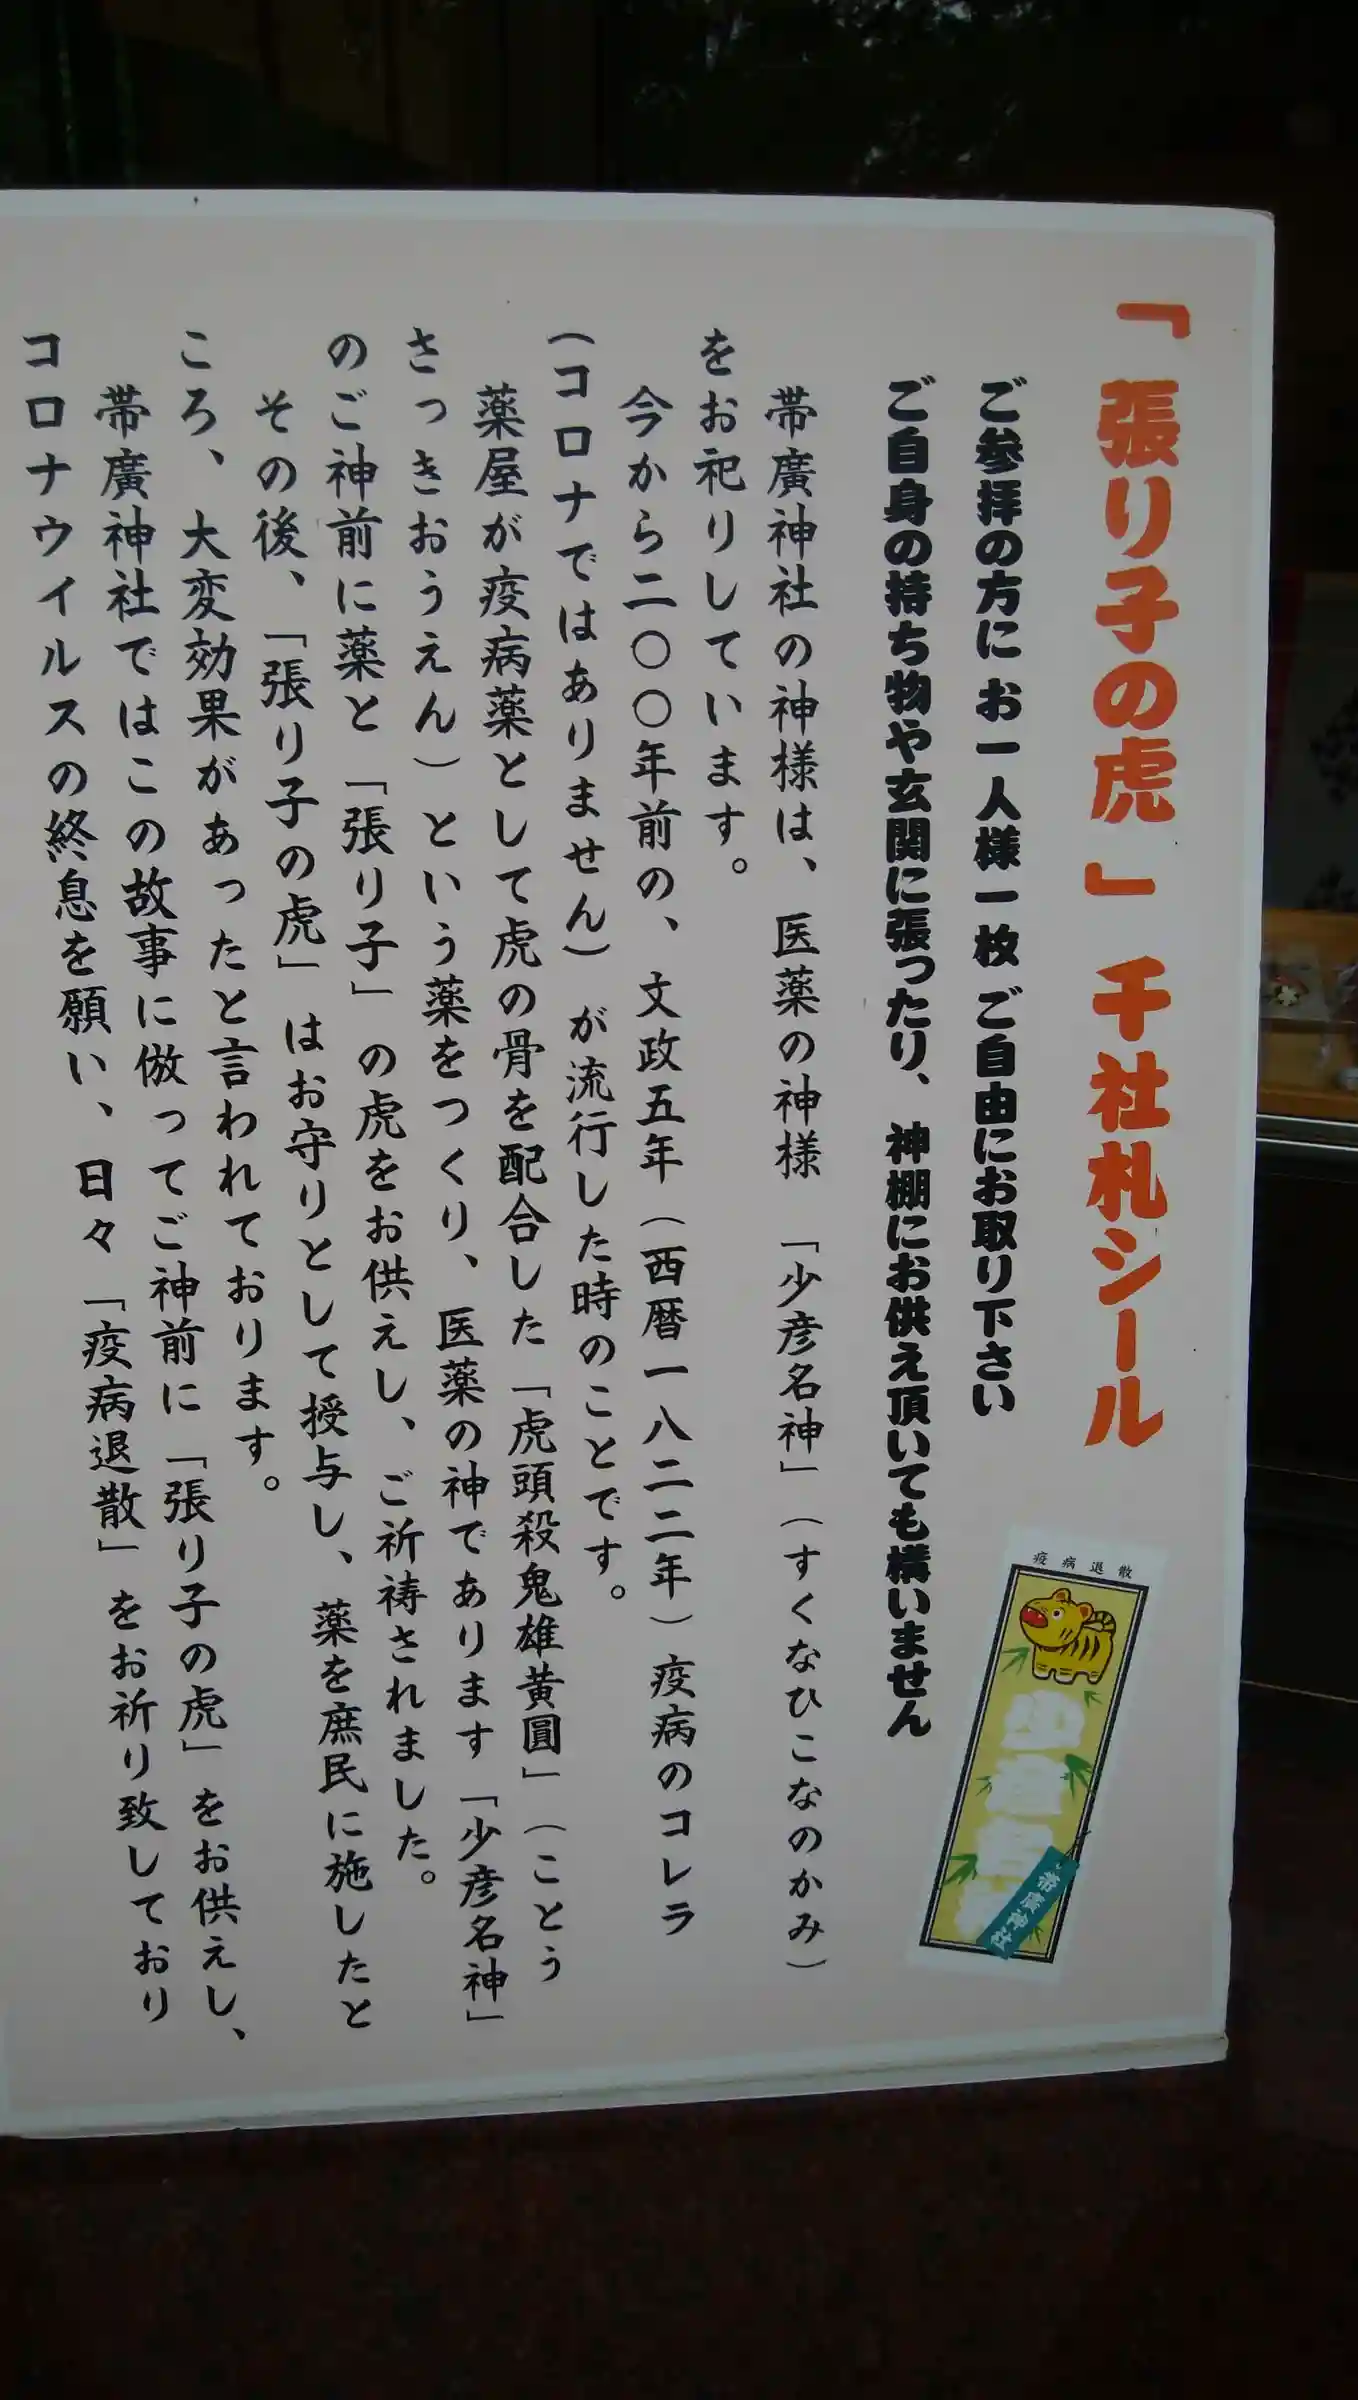 「張り子の虎」千社札シール
ご参拝の方に お一人様一枚 ご自由にお取り下さい
ご自身の持ち物や玄関に張ったり、神棚にお供え頂いても構いません
帯廣神社の神様は、医薬の神様「少彦名神」(すくなひこなのかみ)
をお祀りしています。
今から二〇〇年前の、文政五年(西暦一八二二年)疫病のコレラ
(コロナではありません)が流行した時のことです。
薬屋が疫病薬として虎の骨を配合した「虎頭殺鬼雄黄圓」(ことう
さっきおうえん)という薬をつくり、医薬の神であります「少彦名神」
のご神前に薬と「張り子」の虎をお供えし、ご祈祷されました。
その後、「張り子の虎」はお守りとして授与し、薬を庶民に施したと
ころ、大変効果があったと言われております。
帯廣神社ではこの故事に倣ってご神前に「張り子の虎」をお供えし、
コロナウイルスの終息を願い、日々「疫病退散」をお祈り致しており
疫病退散
帯廣神社